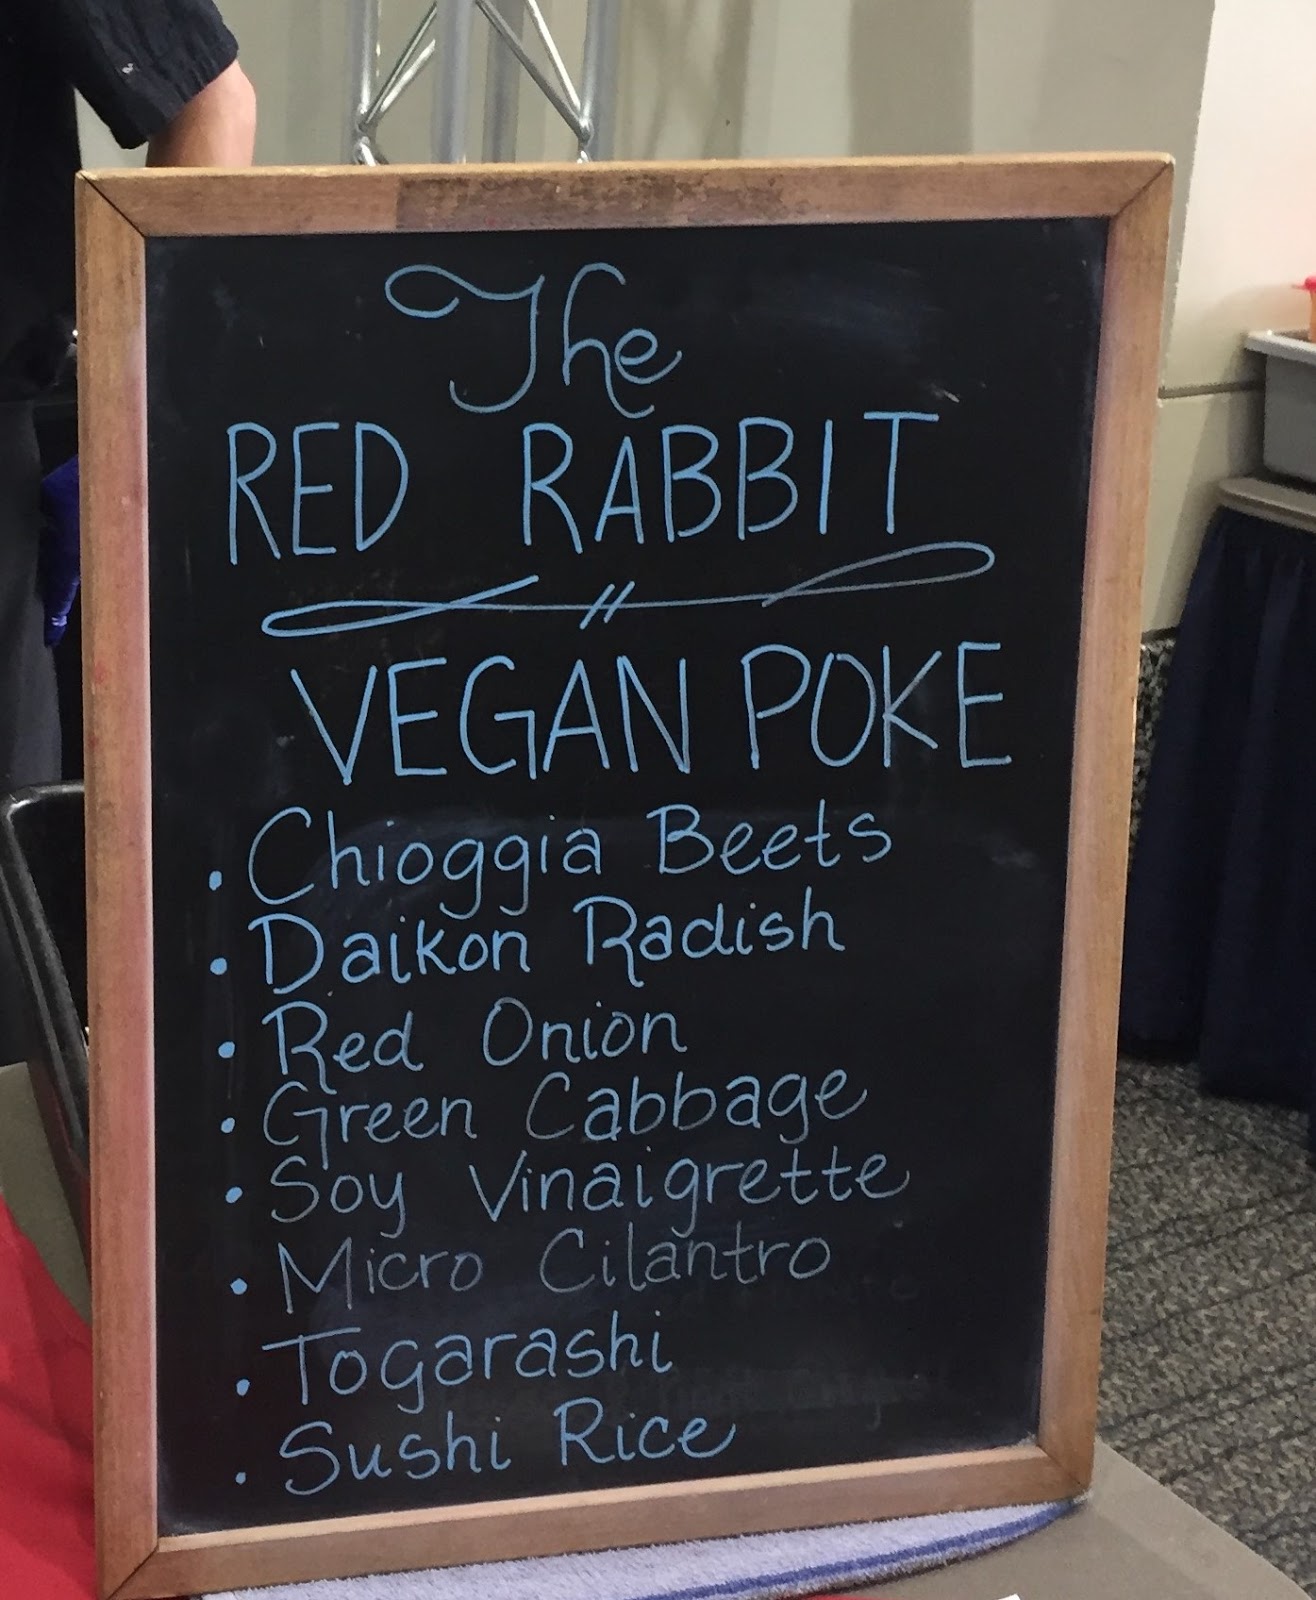 The
RED RABBIT
VEGAN POKE
• Chioggia Beets
• Daikon Radish
• Red Onion
• Green Cabbage
• Soy Vinaigrette
• Micro Cilantro
• Togarashi
• Sushi Rice